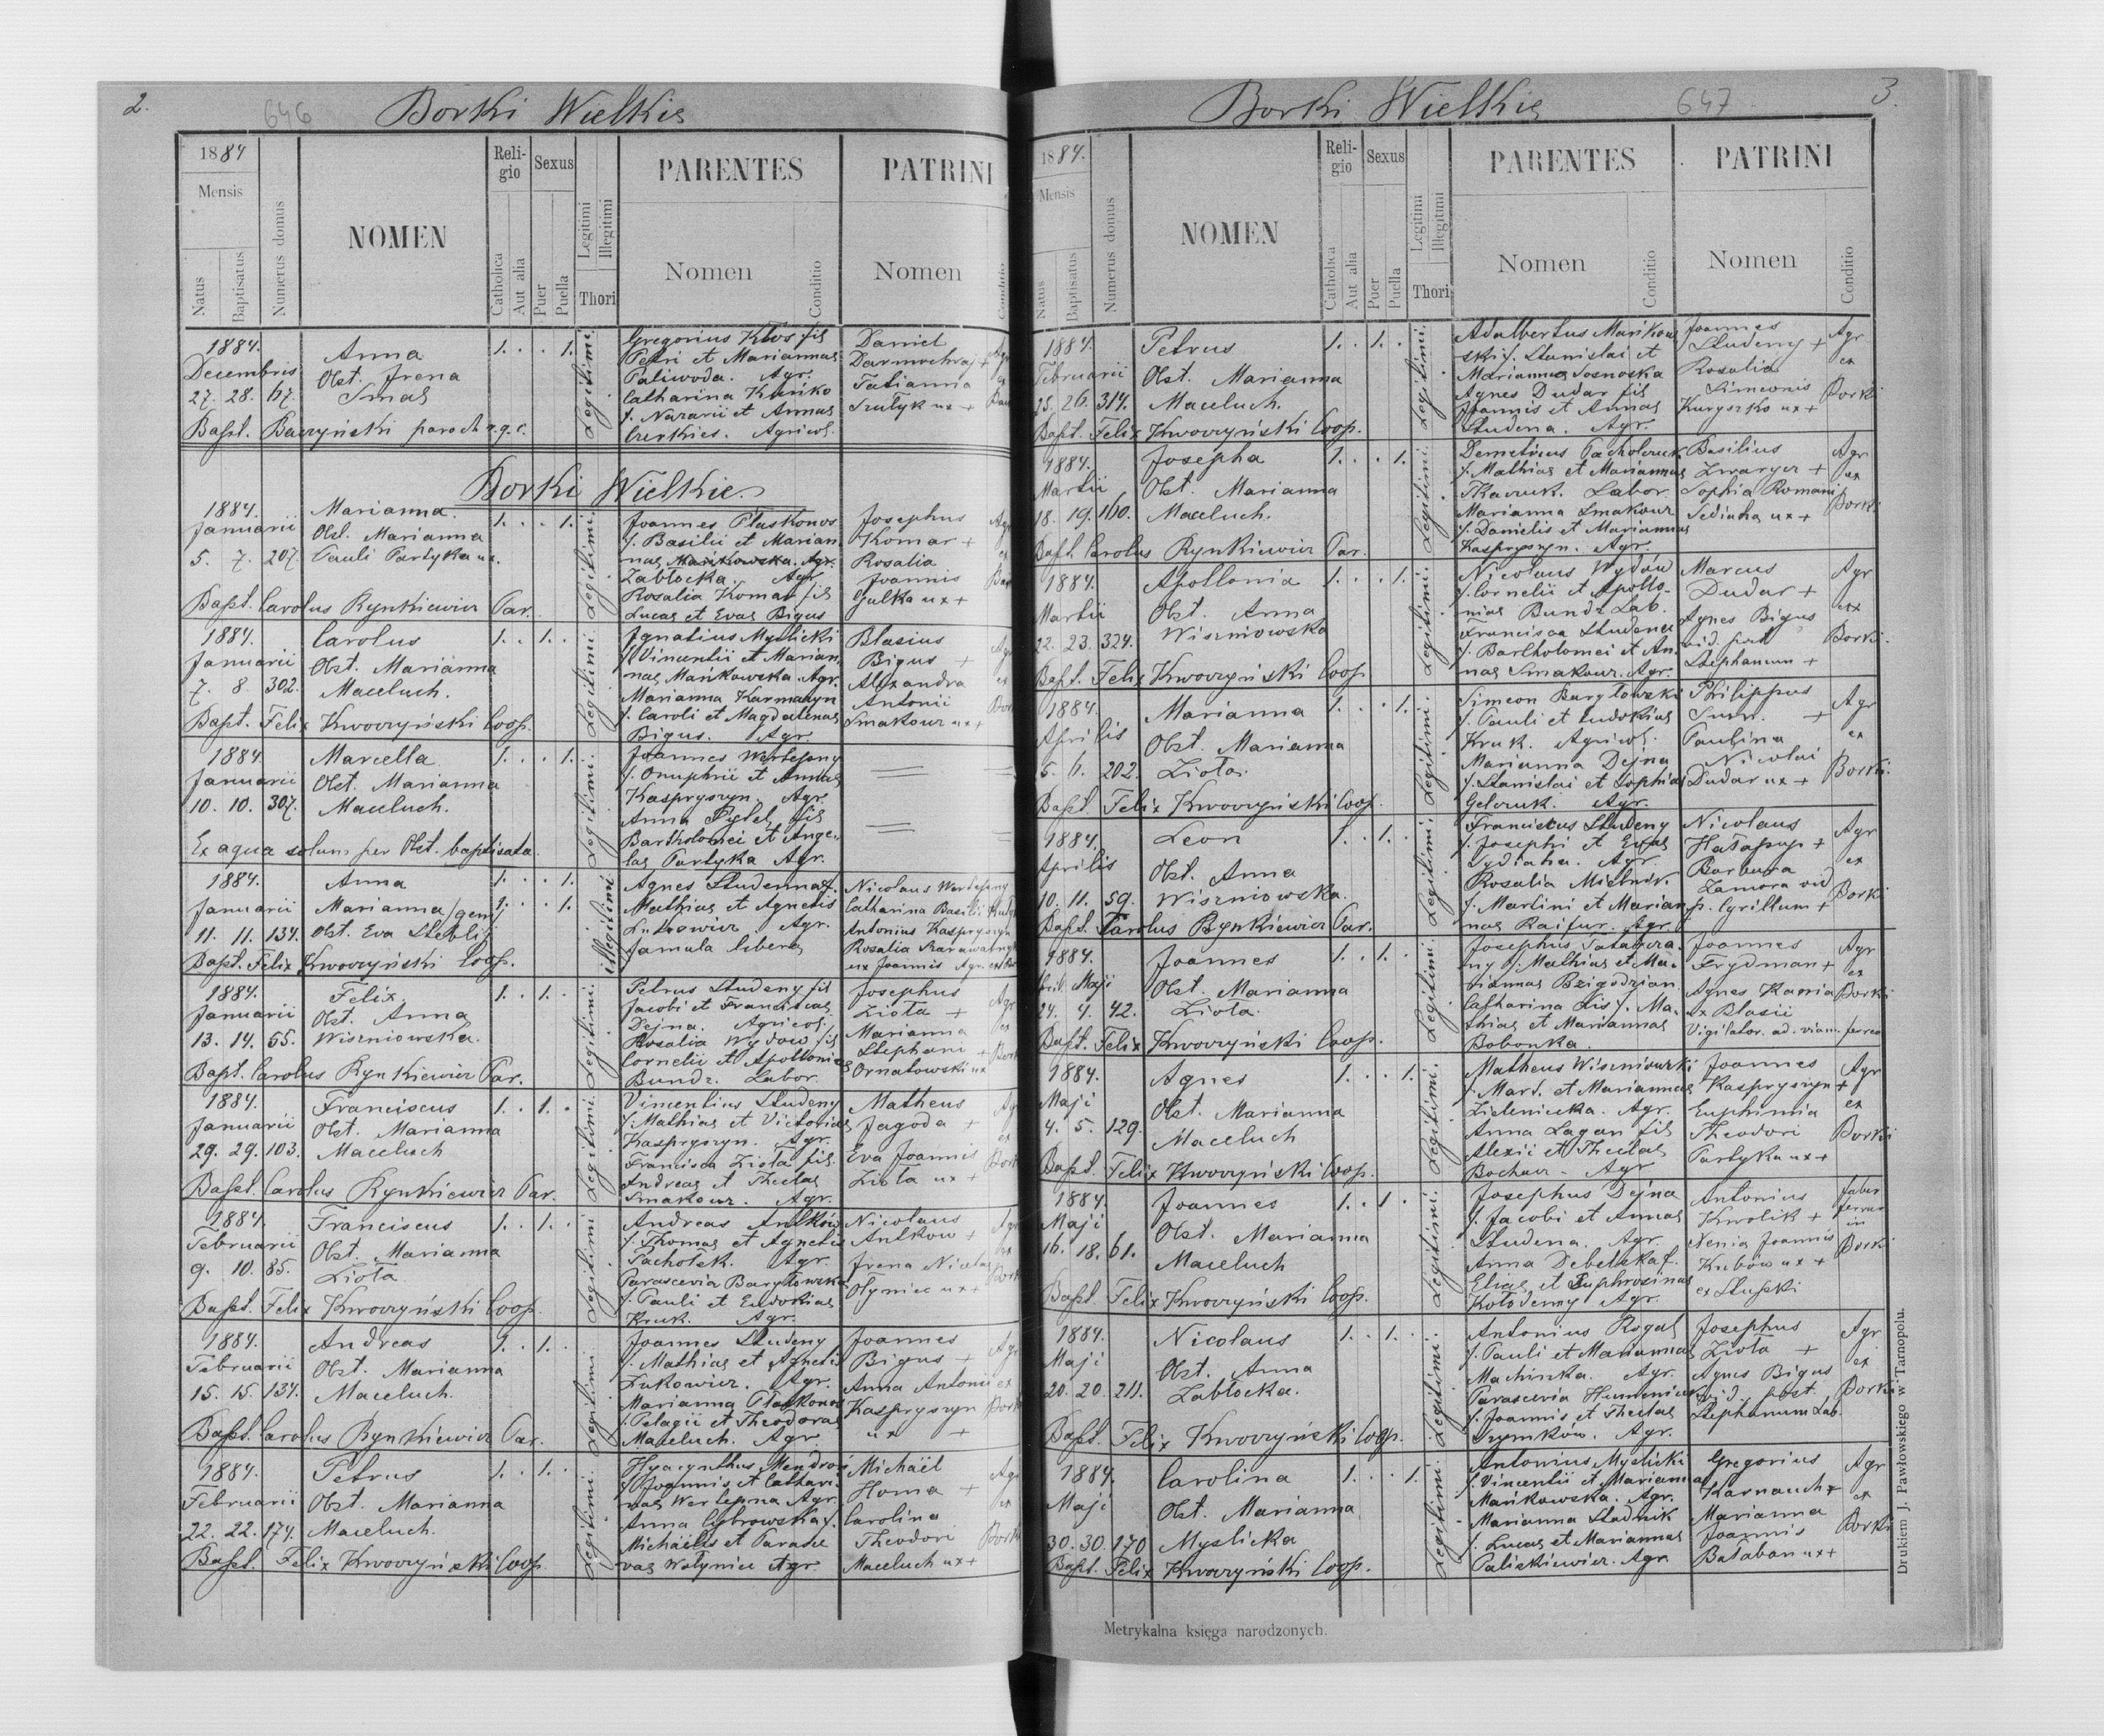 2.
646
Borki Wielkie
1884
Mensis
Natus
Baptisatus
Numerus domus
NOMEN
Religio
Catholica
Aut alia
Sexus
Puer
Puella
Legitimi
Illegitimi
Thori
PARENTES
Nomen
Conditio
PATRINI
Nomen
1884.
Decembris
27. 28. 67.
Anna
Obst. Irena
Smal
1. . . 1.
Legitimi.
Gregorius Kłos fil
Petri et Mariannae
Paliwoda. Agr.
Catharina
f. Nazarii et Annae
Agricol.
Daniel
+
Tatianna
ux +
Bapt. paroch r. g. c.
Borki Wielkie.
1884.
Januarii
5. 7. 207.
Marianna.
Obst. Marianna
Pauli Partyka ux.
1. . . 1.
Legitimi.
Joannes Płaskonos
f. Basilii et Marian
nae Mańkowska. Agr.
Zabłocka. Agr.
Rosalia Komar fil
Lucae et Evae Bigus
Josephus
Komar +
Rosalia
Joannis
Gulka ux +
Bapt. Carolus Rynkiewicz Par.
1884.
Januarii
7. 8. 302.
Carolus
Obst. Marianna
Maceluch.
1. . 1. .
Legitimi.
Ignatius Myslicki
f. Vincentii et Marian
nae Mańkowska. Agr.
Marianna Karmazyn
f. Caroli et Magdalenae
Bigus. Agr.
Blasius
Bigus +
Alexandra
Antonii
Smakouz ux +
Bapt. Felix Kwoczyński Coop.
1884.
Januarii
10. 10. 307.
Marcella.
Obst. Marianna
Maceluch.
1. . . 1.
Legitimi.
Joannes Wertepny
f. Onuphrii et Annae
Kaspryszyn. Agr.
Anna Pytel fil
Bartholomei et Ange
lae Partyka Agr.
Ex aqua solum per Obst. baptisata.
1884.
Januarii
11. 11. 134.
Anna
Marianna / gem
Obst. Eva
1. . . 1.
1. . . 1.
illegitimi
Agnes Studenna f.
Mathiae et Agnetis
Łukowicz Agr.
famula libera
Nicolaus Wertepny
Catharina Basilii
Antonius Kaspryszyn
Rosalia
ux Joannis Agr.
Bapt. Felix Kwoczyński Coop.
1884.
Januarii
13. 14. 55.
Felix.
Obst. Anna
Wiszniowska.
1. . 1. .
Legitimi.
Petrus Studeny fil
Jacobi et Franciscae
Dejna. Agricol.
Rosalia Wydow fil
Cornelii et Apolloniae
Bundz. Labor.
Josephus
Ziota +
Marianna
Stephani +
Ornatowski ux
Bapt. Carolus Rynkiewicz Par.
1884.
Januarii
29. 29. 103.
Franciscus
Obst. Marianna
Maceluch
1. . 1. .
Legitimi.
Vincentius Studeny
f. Mathiae et Victoriae
Kaspryszyn. Agr.
Francisca Ziota fil.
Andreae et Theclae
Smakouz. Agr.
Matheus
Jagoda +
Eva Joannis
Ziota ux +
Bapt. Carolus Rynkiewicz Par.
1884.
Februarii
9. 10. 85.
Franciscus
Obst. Marianna
Ziota
1. . 1. .
Legitimi
Andreas Antków
f. Thomae et Agnetis
Pachołek. Agr.
Parascevia Baryłowska
f. Pauli et Eudokiae
Kruk. Agr.
Nicolaus
Antkow +
Irena Nicolai
Ołyniec ux +
Bapt. Felix Kwoczyński Coop.
1884.
Februarii
15. 15. 134.
Andreas
Obst. Marianna
Maceluch.
1. . 1. .
Legitimi.
Joannes Studeny
f. Mathiae et Agnetis
Łukowicz. Agr.
Marianna Płaskonos
f. Pelagii et Theodorae
Maceluch. Agr.
Joannes
Bigus +
Anna Antonii
Kaspryszyn
ux +
Bapt. Carolus Rynkiewicz Par.
1884.
Februarii
22. 22. 174.
Petrus
Obst. Marianna
Maceluch.
1. . 1. .
Legitimi.
Hyacynthus
f. Joannis et Cathari
nae Wertepna Agr.
Anna f.
Michaelis et Parasce
vae Wołyniec Agr.
Michael
Homa +
Carolina
Theodori
Maceluch ux +
Bapt. Felix Kwoczyński Coop.
3.
647
Borki Wielkie
1884.
Mensis
Natus
Baptisatus
Numerus domus
NOMEN
Religio
Catholica
Aut alia
Sexus
Puer
Puella
Legitimi
Illegitimi
Thori
PARENTES
Nomen
Conditio
PATRINI
Nomen
Conditio
1884.
Februarii
25. 26. 314.
Petrus
Obst. Marianna
Maceluch.
1. . 1. .
Legitimi.
Adalbertus Mańkow
ski f. Stanislai et
Marianna Sosnoska
Agnes Dudar fil
Joannis et Annae
Studena. Agr.
Joannes
Studeny +
Rosalia
Simeonis
Kuryszko ux +
Agr
ex
Borki
Bapt. Felix Kwoczyński Coop.
1884.
Martii
18. 19. 160.
Josepha
Obst. Marianna
Maceluch.
1. . . 1.
Legitimi.
Demetrius Pacholczuk
f. Mathiae et Mariannae
Tkaczuk. Labor.
Marianna Smakouz
f. Danielis et Mariannae
Kaspryszyn. Agr.
Basilius
Zwarycz +
Sophia Romani
Sediaha ux +
Agr
ex
Borki
Bapt. Carolus Rynkiewicz Par.
1884.
Martii
22. 23. 324.
Apollonia
Obst. Anna
Wiszniowska
1. . . 1.
Legitimi.
Nicolaus Wydów
f. Cornelii et Apollo-
niae Bundz Lab.
Francisca Studena
f. Bartholomei et An
nae Smakouz. Agr.
Marcus
Dudar +
Agnes Bigus
vid. post
Stephanum +
Agr
ex
Borki.
Bapt. Felix Kwoczyński Coop
1884.
Aprilis
5. 6. 202.
Marianna
Obst. Marianna
Ziota.
1. . . 1.
Legitimi.
Simeon Baryłowski
f. Pauli et Eudokiae
Kruk. Agricol.
Marianna Dejna
f. Stanislai et Sophiae
Gelczuk. Agr.
Philippus
+
Paulina
Nicolai
Dudar ux +
Agr
ex
Borki
Bapt. Felix Kwoczyński Coop.
1884.
Aprilis
10. 11. 59.
Leon
Obst. Anna
Wiszniowska.
1. . 1. .
Legitimi.
Franciscus Studeny
f. Josephi et Evae
Sydiaha. Agr.
Rosalia
f. Martini et Marian
nae Raifur. Agr.
Nicolaus
Hałapup +
Barbara
Zamora vid
p. Cyrillum +
Agr
ex
Borki
Bapt. Carolus Rynkiewicz Par.
1884.
Maji
24. 4. 42.
Joannes
Obst. Marianna
Ziota.
1. . 1. .
Legitimi.
Josephus
ny f. Mathiae et Ma-
riannae
Catharina Lis f. Ma-
thiae et Mariannae
Bobonka.
Joannes
Frydman +
Agnes Kania
ux Blasii
Vigilator. ad. viam ferrea
Agr
ex
Borki
Bapt. Felix Kwoczyński Coop.
1884.
Maji
4. 5. 129.
Agnes
Obst. Marianna
Maceluch
1. . . 1.
Legitimi.
Matheus Wiszniowski
f. Mart. et Mariannae
Zieleniecka. Agr.
Anna Lagan fil
Alexii et Theclae
Bochar. Agr
Joannes
Kaspryszyn +
Euphimia
Theodori
Partyka ux +
Agr
ex
Borki
Bapt. Felix Kwoczyński Coop.
1884.
Maji
16. 18. 61.
Joannes
Obst. Marianna
Maceluch
1. . 1 .
Legitimi.
Josephus Dejna
f. Jacobi et Annae
Studena. Agr.
Anna Debelska f.
Eliae et Euphrosinae
Kołodenny Agr.
Antonius
Kwolik +
Xenia Joannis
Kubów ux +
ex Stupki
faber
ferrar
in
Borki
Bapt. Felix Kwoczyński Coop.
1884.
Maji
20. 20. 211.
Nicolaus
Obst. Anna
Zabłocka.
1. . 1. .
Legitimi.
Antonius Rogal
f. Pauli et Mariannae
Machinka. Agr.
Parascevia Humeniuk
f. Joannis et Theclae
Agr.
Josephus
Ziota +
Agnes Bigus
vid. post.
Stephanum Lab.
Agr
ex
Borki
Bapt. Felix Kwoczyński Coop.
1884.
Maji
30. 30. 170
Carolina
Obst. Marianna
Myslicka
1. . . 1.
Legitimi.
Antonius Myslicki
f. Vincentii et Mariannae
Mańkowska. Agr.
Marianna Sladnik
f. Lucae et Mariannae
Paliskiewicz. Agr
Gregorius
Karnauch +
Marianna
Joannis
Bałaban ux +
Agr
ex
Borki
Bapt. Felix Kwoczyński Coop.
Metrykalna księga narodzonych.
Drukiem J. Pawłowskiego w Tarnopolu.